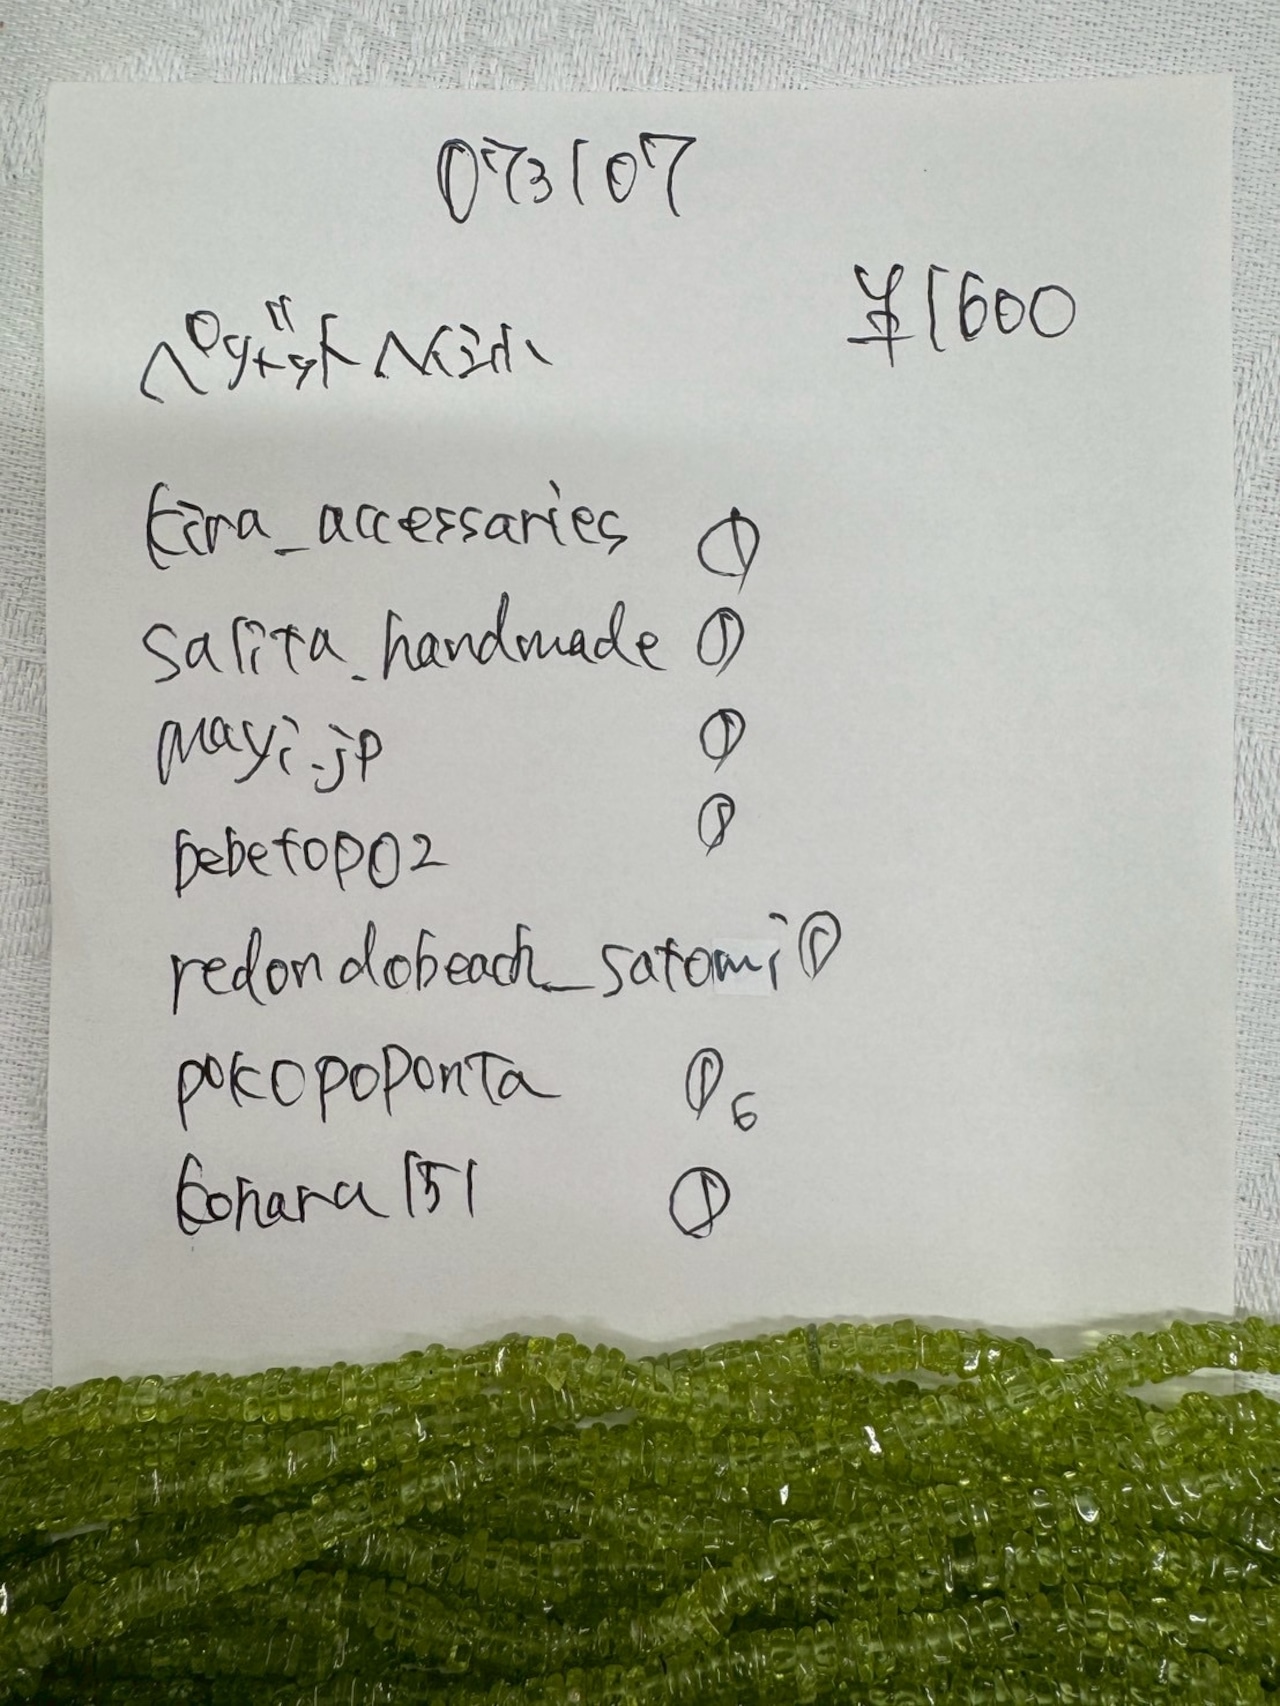 073107
¥1600
ペリドット ヘイシ小
kira_accessaries ①
salita_handmade ①
mayi.jp ①
bebetopo2 ①
redondobeach_satomi ①
pokopoponta ① 6
kohara151 ①